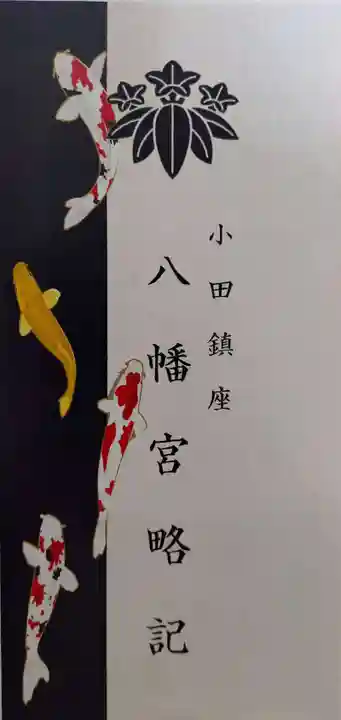 小田鎮座
八幡宮略記